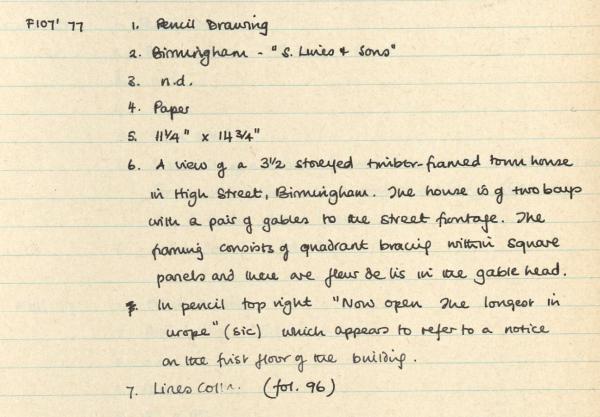 F107' 77 1. Pencil Drawing
2. Birmingham - "S. Lines & Sons"
3. n.d.
4. Paper
5. 11¼" x 14¾"
6. A view of a 3½ storeyed timber-framed town house
in High Street, Birmingham. The house is of two bays
with a pair of gables to the street frontage. The
framing consists of quadrant bracing within square
panels and there are fleur de lis in the gable head.
In pencil top right "Now open The longest in
urope" (sic) which appears to refer to a notice
on the first floor of the building.
7. Lines Colln. (fol. 96)